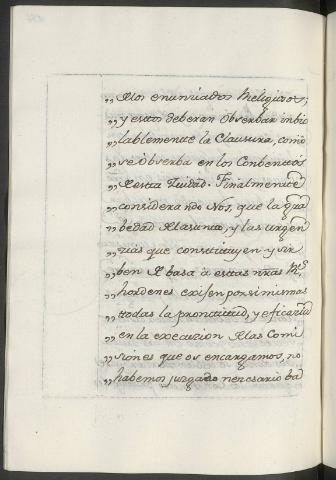 „ de los enunciados Religiosos;
„ y estos deberan Observar inbio
„ lablemente la Clausura, como
„ se Observa en los Conbentos
„ de esta Ziudad. Finalmente
„ considerando Nos, que la gra
„ bedad del asunto, y las urgen
„ zias que constituyen y sir
„ ben de basa a estas nras
„ hordenes exijen por si mismas
„ ttodas la pronttitud, y eficazia
„ en la execuzion de las Comi
„ siones que os encargamos, no
„ habemos juzgado nencesario ba